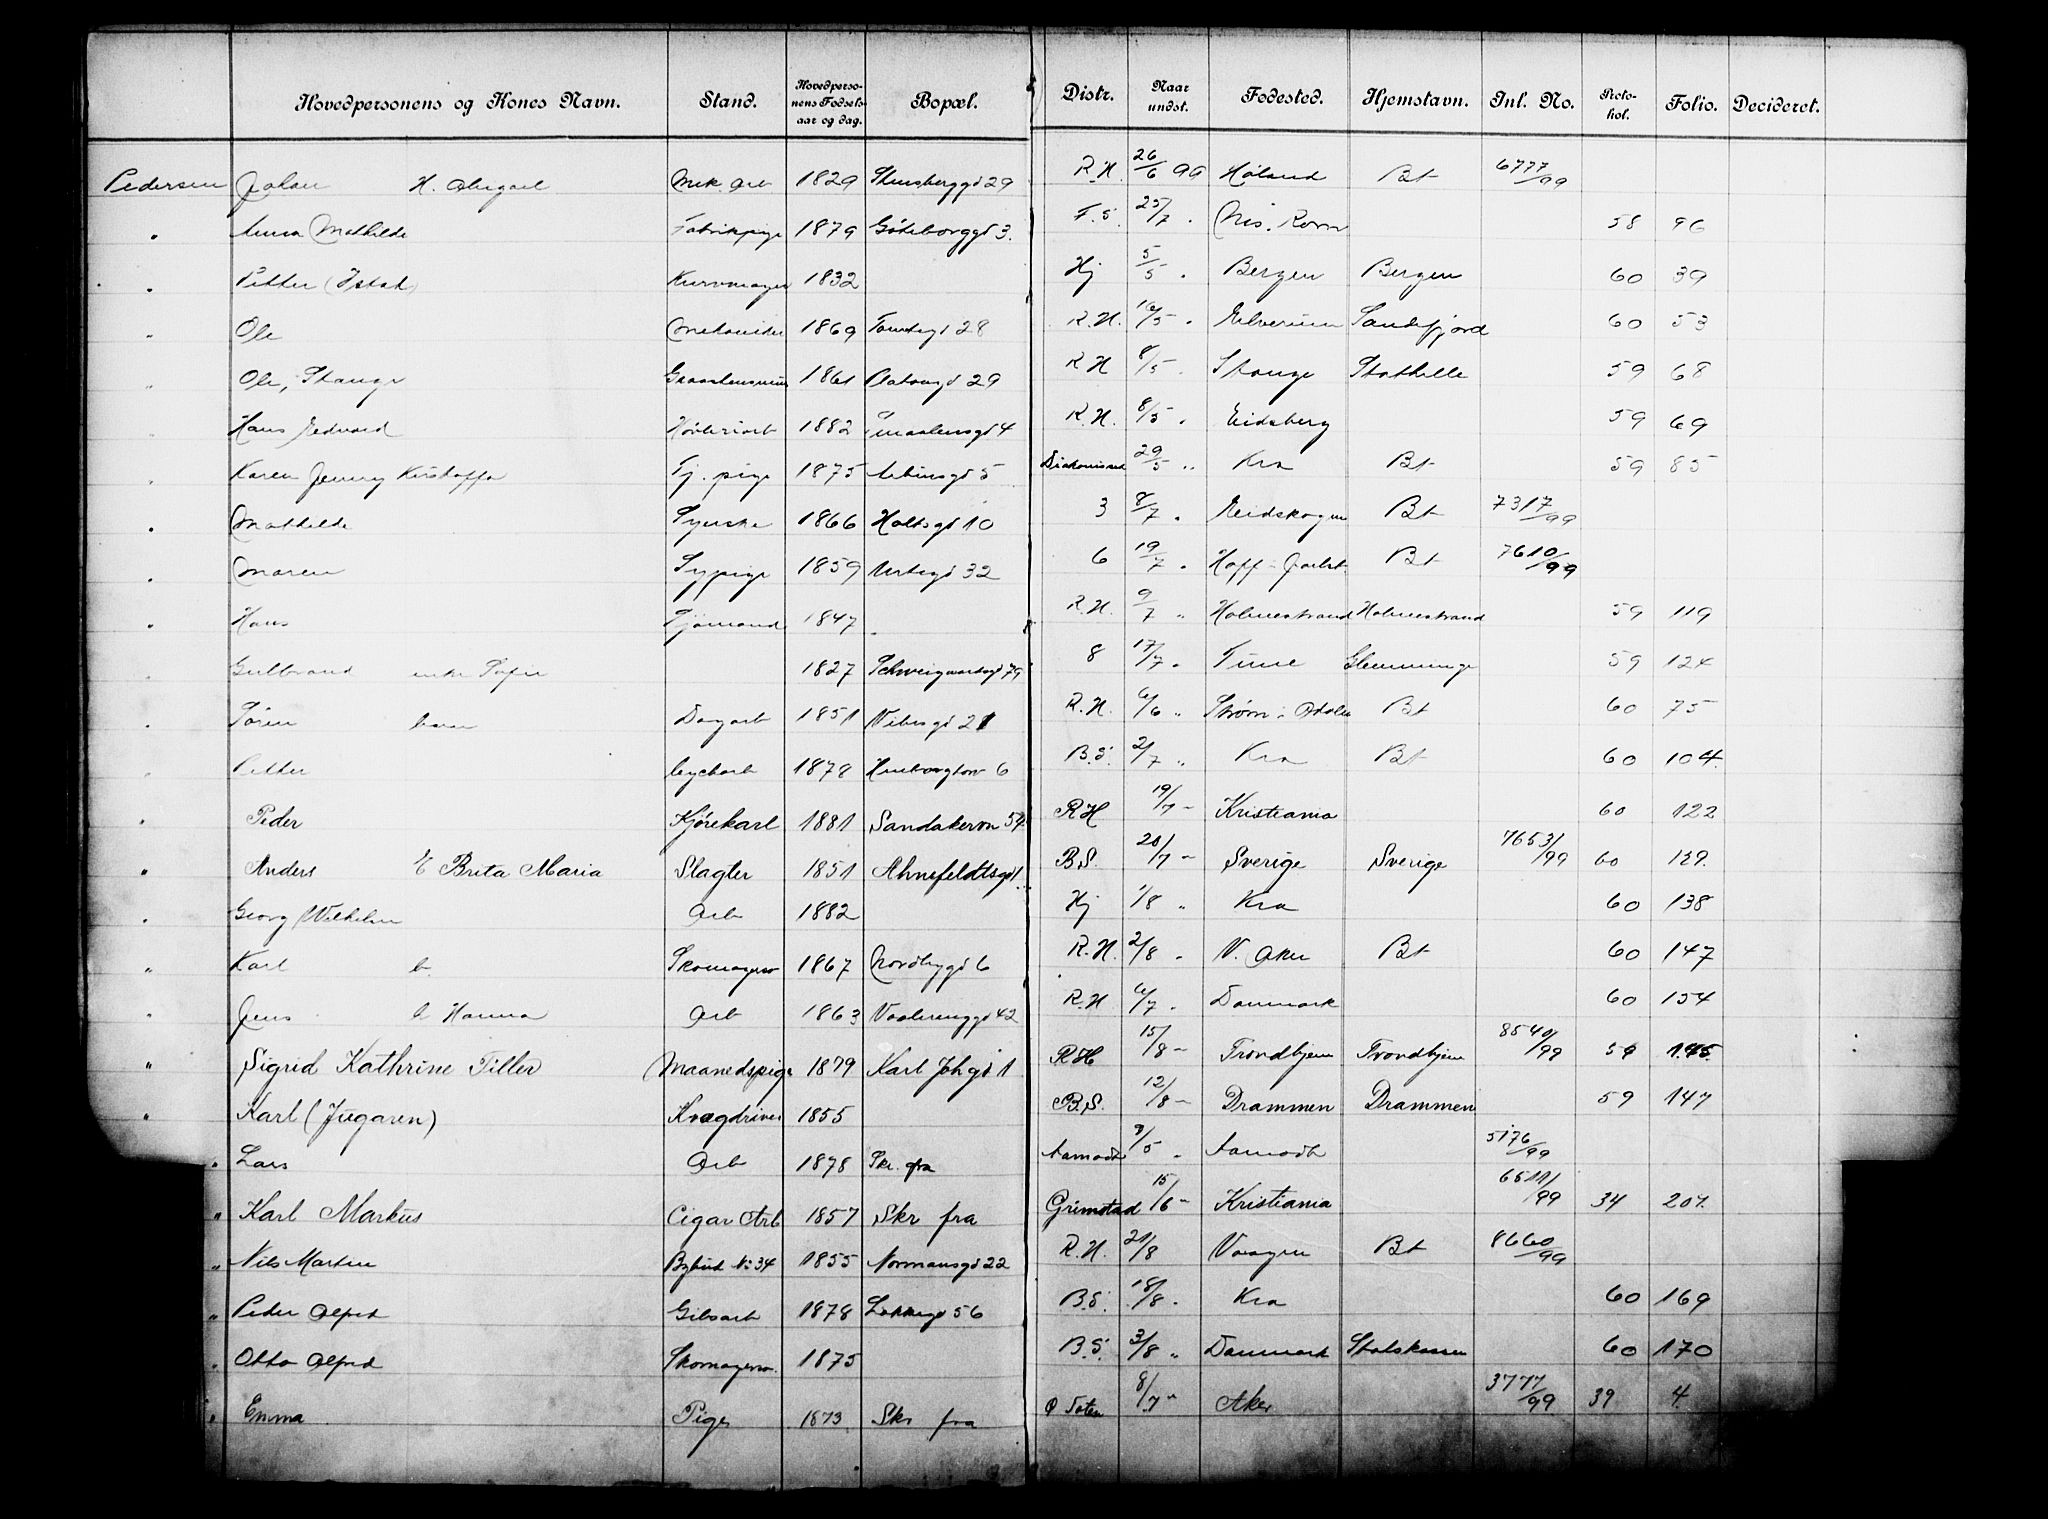 Hovedpersonens og Kones Navn. Stand. Hovedperso-nens Fødsels-aar og dag. Bopæl. Distr. Naar undst. Fødested. Hjemstavn. Inl. No. Proto-kol. Folio. Decideret.
Pedersen Johan H. Abigael Mek. Arb 1829 29 R.H. 26/6 99 Høland Bt 6777/99
" Anna Mathilde Fabrikpige 1879 Göteborggd 3. F.S. 25/7 " 58 96
" Petter Kurvmager 1832 Hj 5/5 " Bergen Bergen 60 39
" Ole Mekaniker 1869 Tomtegd 28 R.H. 16/5 " Elverum Sandefjord 60 53
" Ole, Stange 1861 29 R.H 8/5 " Stange Stathelle 59 68
" Hans Edvard Høvleriarb 1882 Smaalensgd 4 R.H. 8/5 " Eidsberg 59 69
" Karen Jenny Tj. pige 1875 Arbinsgd 5 29/5 " Kra Bt 59 85
" Mathilde Syerske 1866 Holtsgd 10 3 8/7 " Eidskogen Bt 7317/99
" Maren Sypige 1859 Urtegd 32 6 19/7 " Hoff Bt 7610/99
" Hans Sjömand 1847 " R.H. 9/7 " Holmestrand Holmestrand 59 119
" Gulbrand enke Sofie 1827 Schweigaardsgd 79 8 17/7 " Tune Glemminge 59 124
" Søren barn Dagarb 1851 Vibesgd 21 R.H. 6/6 " Strøm i Odalen Bt 60 75
" Petter 1878 6 B.S. 2/7 " Kra Bt 60 104
" Peder Kjørekarl 1881 Sandakervn R.H 19/7 " Kristiania 60 122
" Anders E Brita Maria Slagter 1851 Ahnefeldtsgd 1 B.S. 20/7 " Sverige Sverige 7653/99 60 129.
" Georg Wilhelm Arb 1882 Hj 1/8 " Kra 60 138
" Karl b. Skomagersv 1867 Nordbygd 6 R.H. 2/8 " V. Aker Bt 60 147
" Jens b Hanna Arb 1863 Vaalerenggd 42 R.H 6/7 " Danmark 60 154
" Sigrid Kathrine Tiller Maanedspige 1879 Karl Johgd 1 R.H 15/8 " Trondhjem Trondhjem 8540/99 59 145
" Karl (Jugaren) Kvægdriver 1855 B.S. 12/8 " Drammen Drammen 59 147
" Lars Arb 1878 Skr. fra Aamodt 9/5 " Aamodt 5176/99
" Karl Markus Cigar Arb 1857 Skr fra Grimstad 15/6 " Kristiania 6511/99 34 207.
" Nils Martin Bybud No 34 1855 Normansgd 22 R.H. 21/8 Vaagen Bt 8660/99
" Peder Alfred Gibsarb 1878 Løkkegd 56 B.S. 18/8 " Kra 60 169
" Otto Alfred Skomagersv. 1875 B.S. 3/8 " Danmark Statskassen 60 170
" Emma Pige 1873 Skr fra Ø Toten 8/7 " Aker 3777/99 39 4